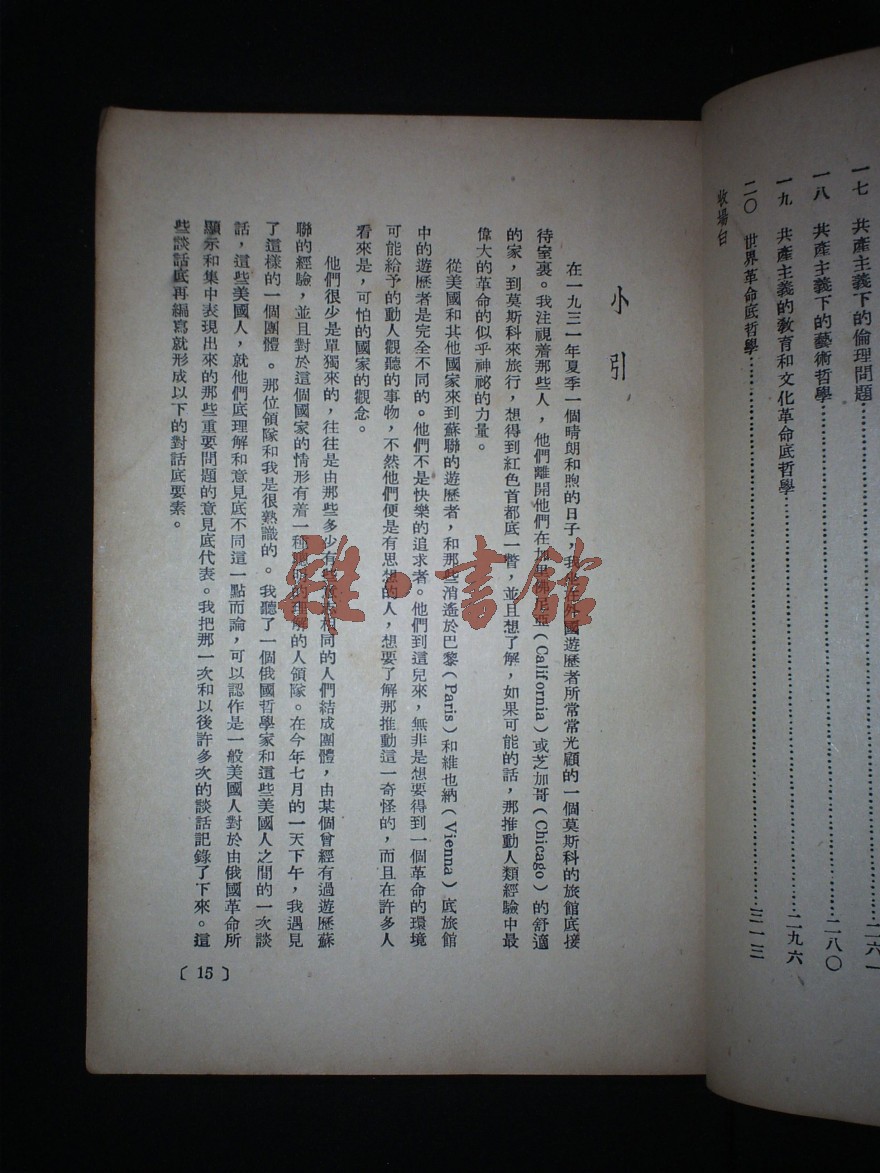 一七　共產主義下的倫理問題…………二六一
一八　共產主義下的藝術哲學…………二八〇
一九　共產主義的教育和文化革命底哲學…………二九六
二〇　世界革命底哲學…………三一三
收場白
小引
在一九三一年夏季一個晴朗和煦的日子，我坐在外國遊歷者所常常光顧的一個莫斯科的旅館底接
待室裏。我注視着那些人，他們離開他們在加里佛尼亞(California)或芝加哥(Chicago)的舒適
的家，到莫斯科來旅行，想得到紅色首都底一瞥，並且想了解，如果可能的話，那推動人類經驗中最
偉大的革命的似乎神祕的力量。
從美國和其他國家來到蘇聯的遊歷者，和那些消遙於巴黎(Paris)和維也納(Vienna)底旅館
中的遊歷者是完全不同的。他們不是快樂的追求者。他們到這兒來，無非是想要得到一個革命的環境
可能給予的動人觀聽的事物，不然他們便是有思想的人，想要了解那推動這一奇怪的，而且在許多人
看來是，可怕的國家的觀念。
他們很少是單獨來的，往往是由那些多少有些相同的人們結成團體，由某個曾經有過遊歷蘇
聯的經驗，並且對於這個國家的情形有着一種的理解的人領隊。在今年七月的一天下午，我遇見
了這樣的一個團體。那位領隊和我是很熟識的。我聽了一個俄國哲學家和這些美國人之間的一次談
話，這些美國人，就他們底理解和意見底不同這一點而論，可以認作是一般美國人對於由俄國革命所
顯示和集中表現出來的那些重要問題的意見底代表。我把那一次和以後許多次的談話記錄了下來。這
些談話底再編寫就形成以下的對話底要素。
〔15〕
雜·書館